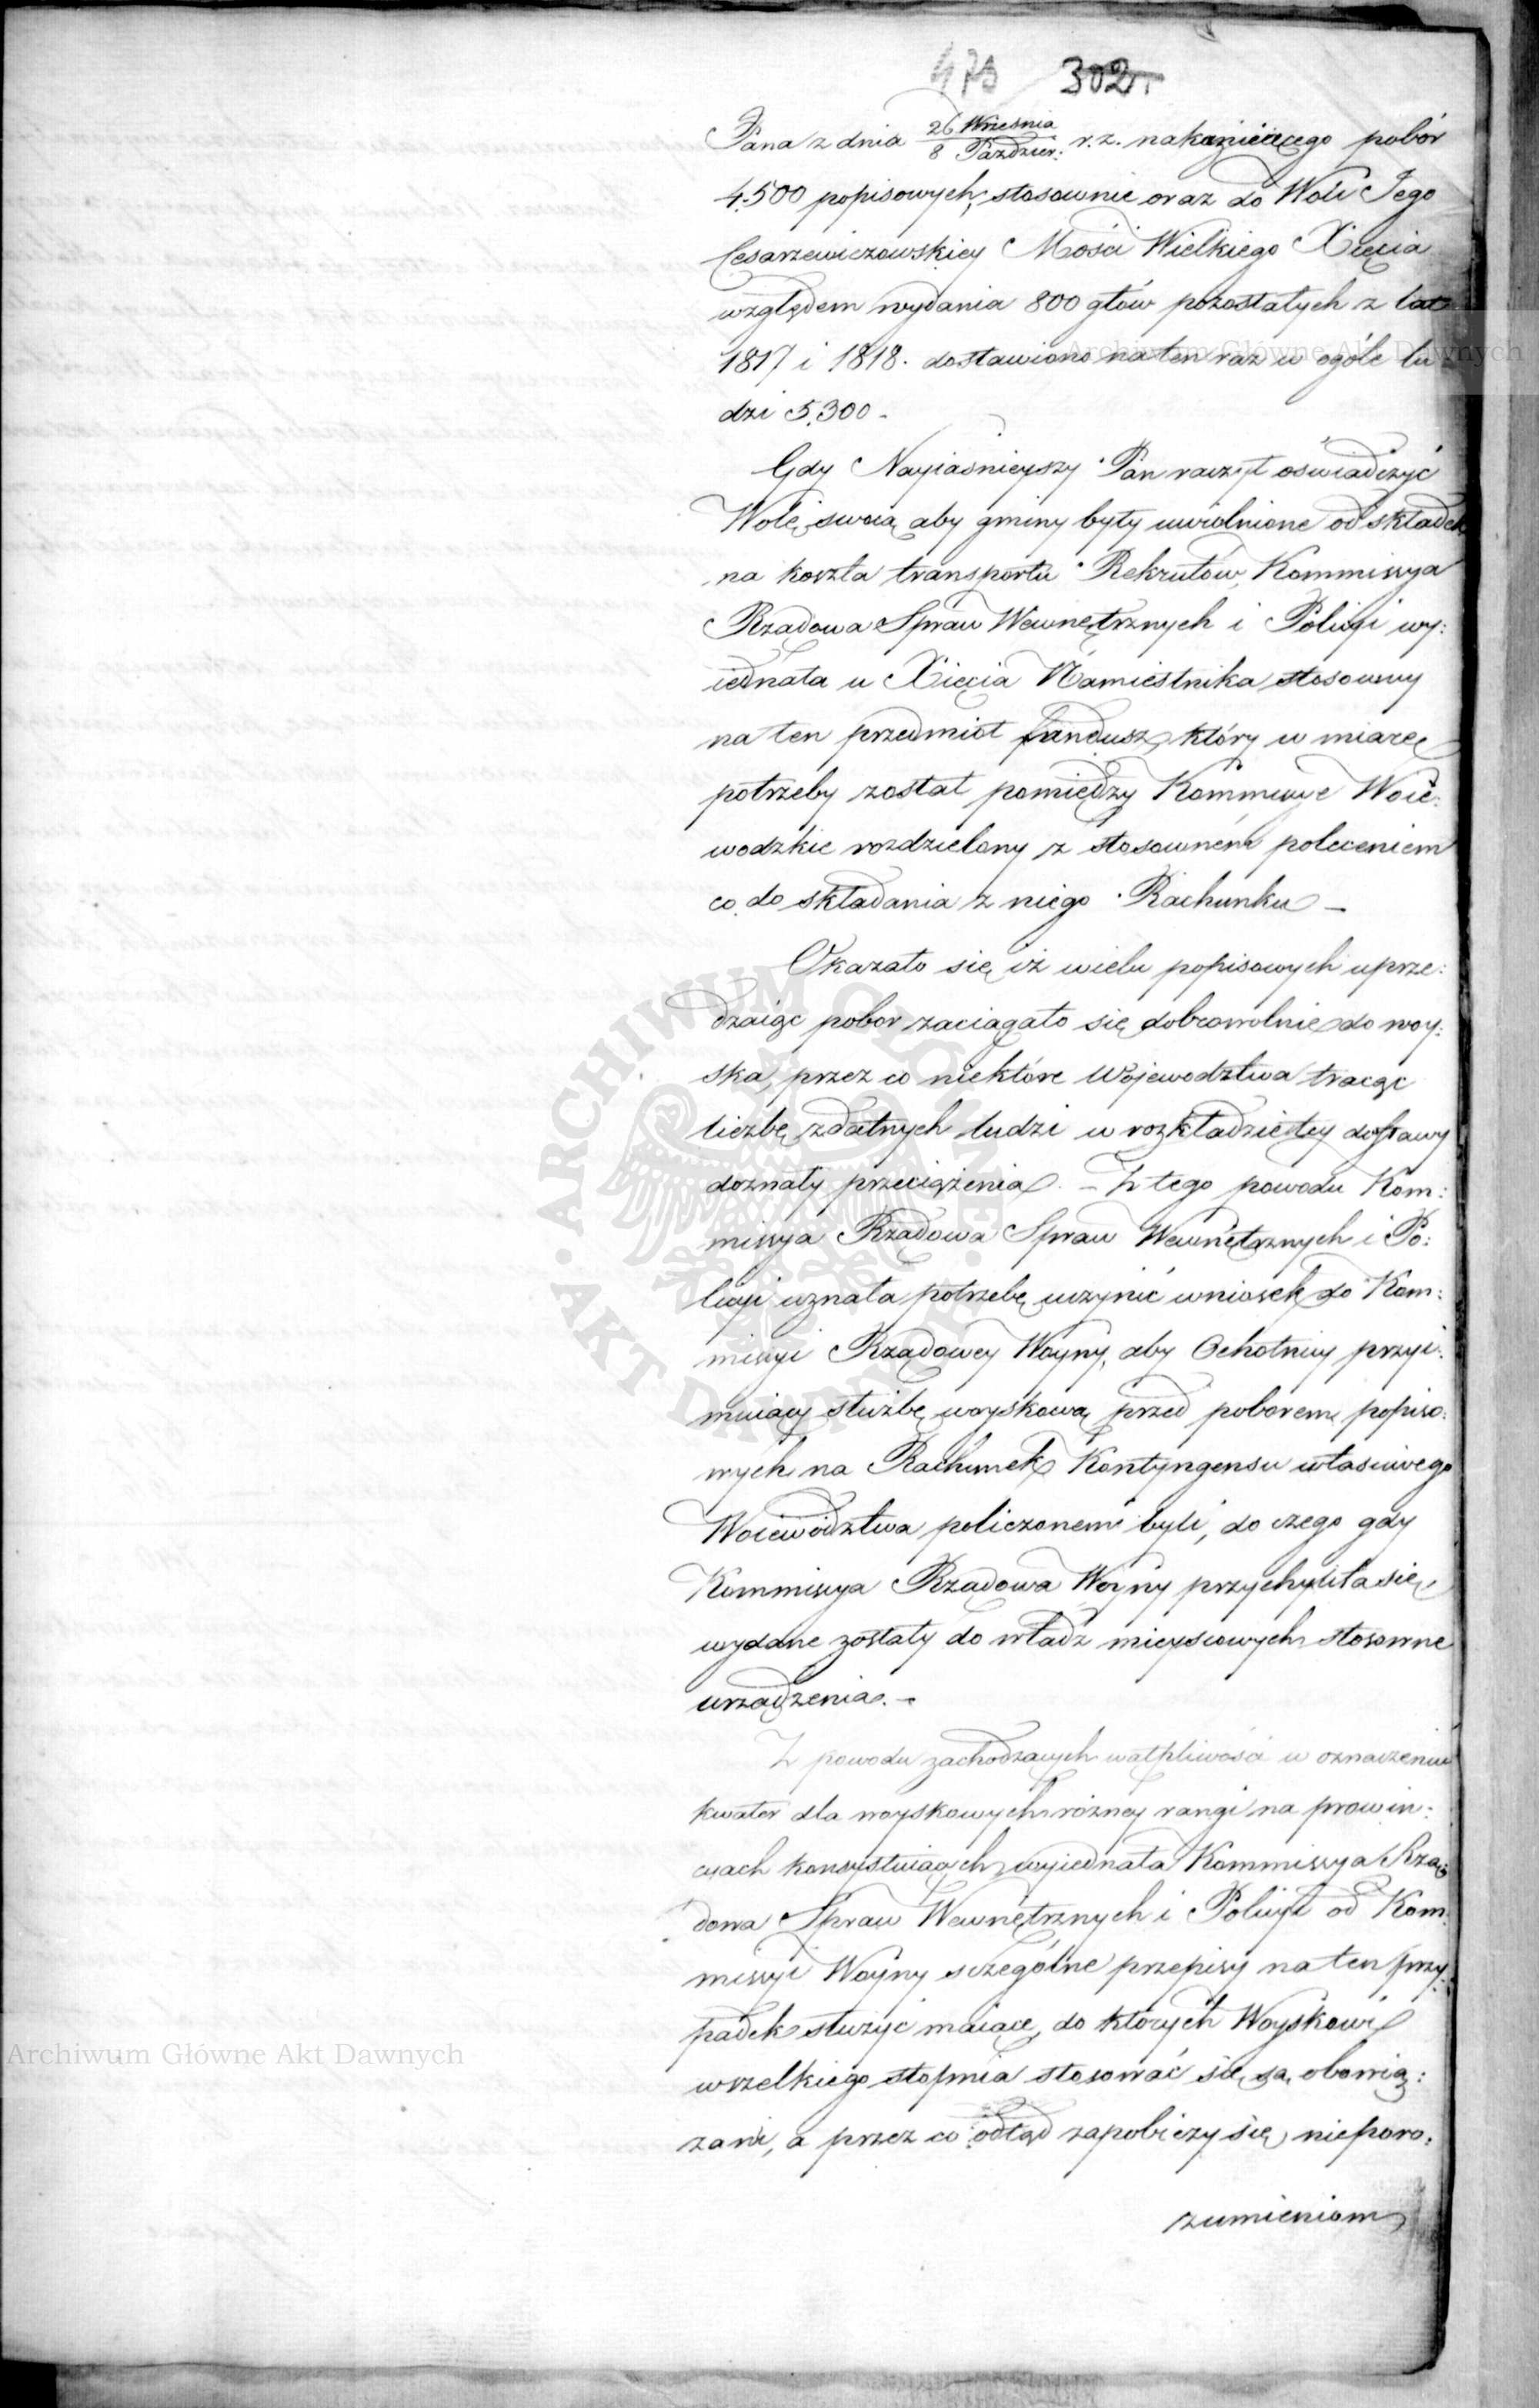 475 302
Pana z dnia 26 Września / 8 Paździer: r.z. nakazuiącego pobór
4,500 popisowych, stosownie oraz do Woli Jego
Cesarzewiczowskiey Mości Wielkiego Xięcia
względem wydania 800 głów pozostałych z lat
1817 i 1818. dostawiono na ten raz w ogóle lu
dzi 5,300 -
Gdy Nayiaśnieyszy Pan raczył oświadczyć
Wolę swoią aby gminy były uwolnione od składek
na koszta transportu Rekrutów, Kommissya
Rządowa Spraw Wewnętrznych i Policyi wy:
iednała u Xięcia Namiestnika stosowny
na ten przedmiot fundusz, który w miarę
potrzeby został pomiędzy Kommissye Woie:
wodzkie rozdzielony z stosownem poleceniem
co do składania z niego Rachunku –
Okazało się iż wielu popisowych uprze:
dzaiąc pobor zaciągało się dobrowolnie do woy:
ska, przez co niektóre Wojewodztwa tracąc
liczbę zdatnych ludzi w rozkładzie tey dostawy
doznały przeciążenia. – Z tego powodu Kom:
missya Rządowa Spraw Wewnętrznych i Po:
licyi uznała potrzebę uczynić wniosek do Kom:
missyi Rządowey Woyny, aby Ochotnicy przyi:
muiący służbę woyskową przed poborem popiso:
wych na Rachunek Kontyngensu właściwego
Woiewództwa policzonemi byli, do czego gdy
Kommissya Rządowa Woyny przychyliła się,
wydane zostały do władz mieyscowych stosowne
urządzenia. –
Z powodu zachodzących wątpliwości w oznaczeniu
kwater dla woyskowych różney rangi na prowin:
cyach konsystuiących, wyiednała Kommissya Rzą
dowa Spraw Wewnętrznych i Policyi od Kom:
missyi Woyny szczególne przepisy na ten przy:
padek służyć maiące, do których Woyskowi
wszelkiego stopnia stosować się są obowią:
zani, a przez co odtąd zapobieży się nieporo:
zumieniom
Archiwum Główne Akt Dawnych
Archiwum Główne Akt Dawnych
ARCHIWUM GŁÓWNE · AKT DAWNYCH ·